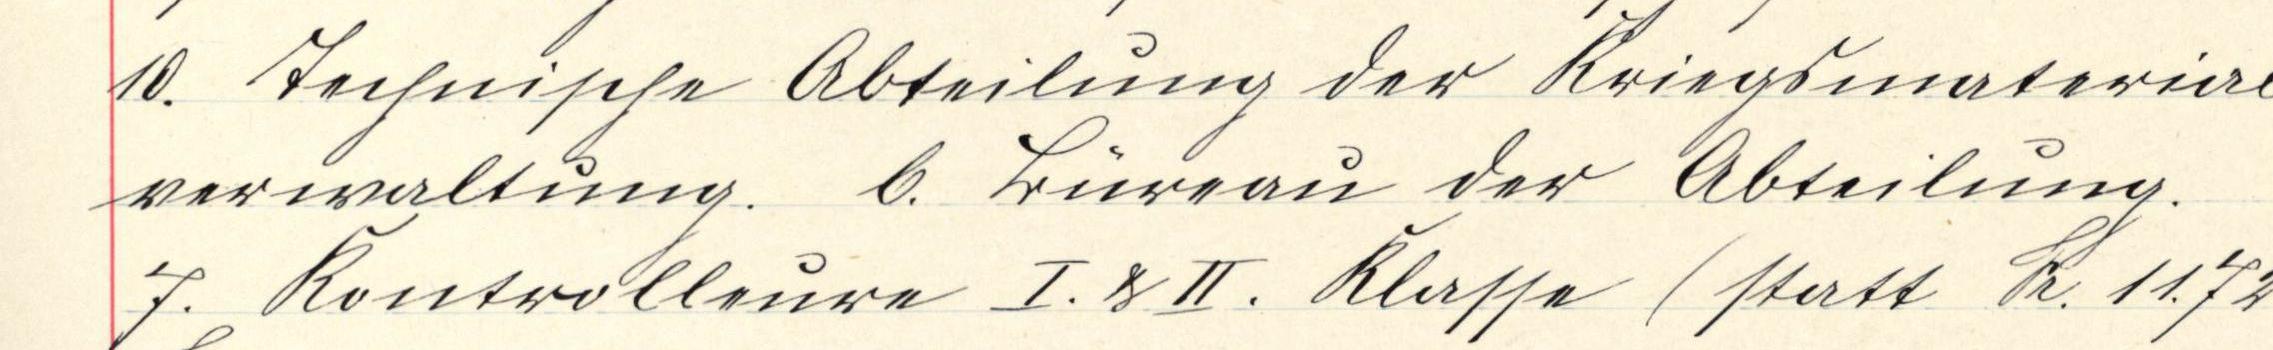 10. Technische Abteilung der Kriegsmaterial
verwaltung. b. Büreau der Abteilung.
7. Kontrolleure I. & II. Klasse (statt Fr. 11.72